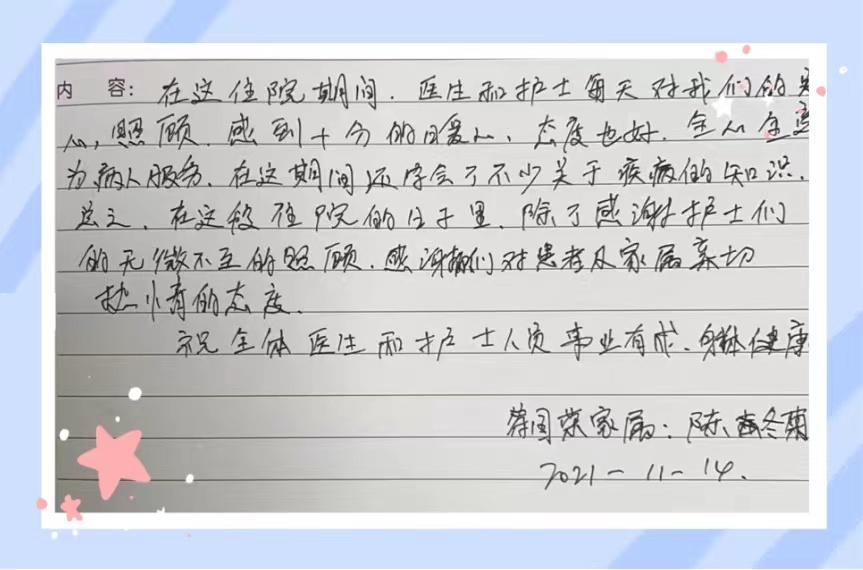 内 容: 在这住院期间.医生和护士每天对我们的关
心,照顾.感到十分的暖心、态度也好.全心全意
为病人服务.在这期间还学会了不少关于疾病的知识.
总之.在这段住院的日子里.除了感谢护士们
的无微不至的照顾.感谢她们对患者及家属亲切
热情的态度.
祝全体医生和护士人员事业有成、身体健康
国荣家属:陈 冬菊
2021-11-14.